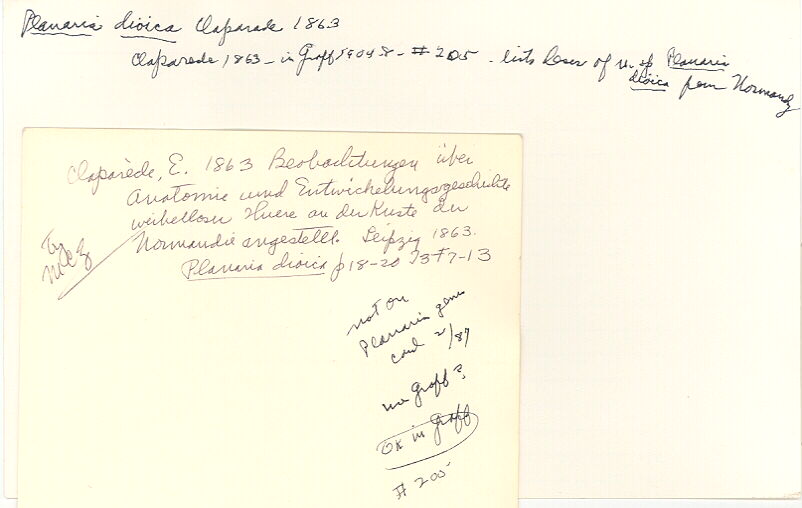 Planaria dioica Claparade 1863
Claparede 1863 - in Graff 1904-8 - #205 - lists descr of n. sp Planaria
dioica from Normandy
Claparède, E. 1863 Beobachtungen über
Anatomie und Entwickelungsgeschichte
wirbelloser Thiere an der Kuste der
Normandie angestellt. Leipzig 1863.
Planaria dioica p 18-20 T3 F7-13
Try
MCZ
not on
Planaria genus
card 2/87
no Graff?
OK in Graff
#205